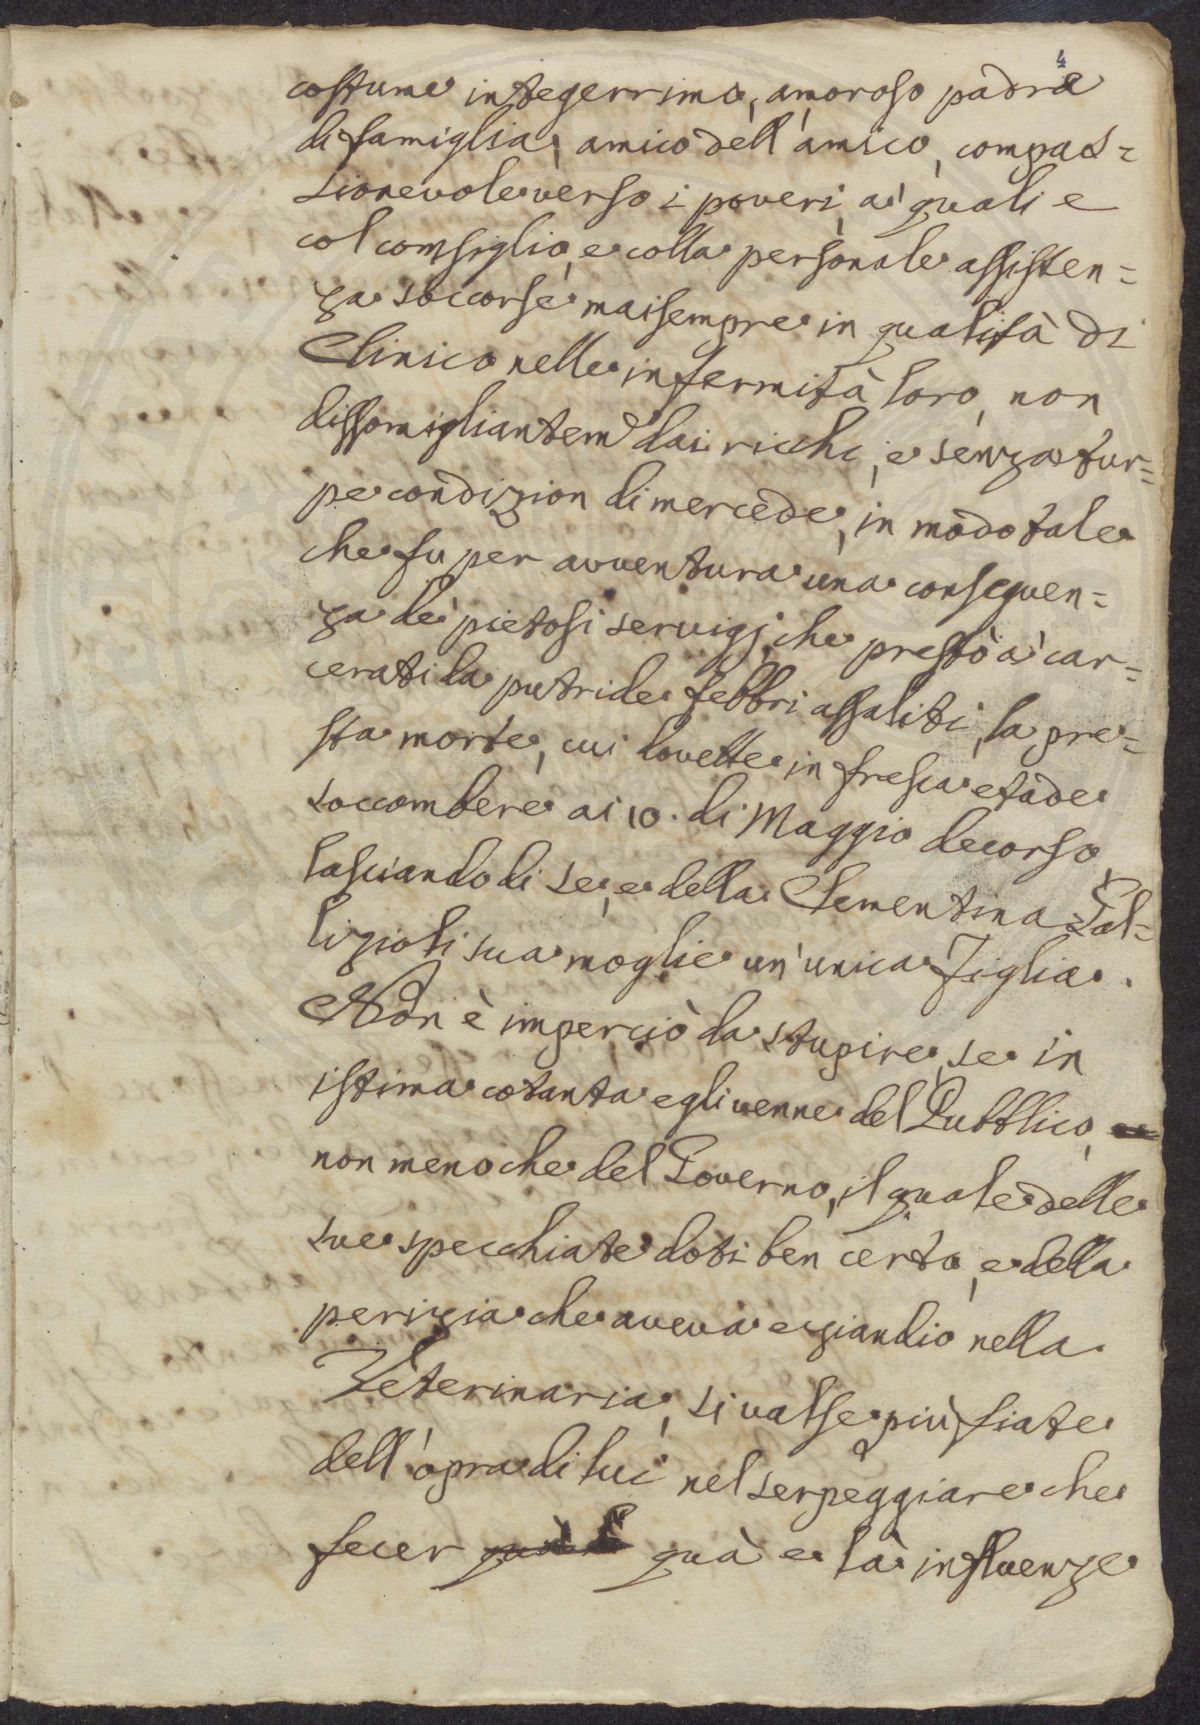 4
costume integerrimo, amoroso padre
di famiglia, amico dell'amico, compas=
sionevole verso i poveri, a' quali e
col comsiglio, e colla personale assisten=
za soccorse maisempre in qualità di
Clinico nelle infermità loro, non
dissomigliantem.e dai ricchi, e senza tur=
pe condizion di mercede, in modo tale
che fu per avventura una conseguen=
za de' pietosi servigj, che prestò a' car=
cerati da putride febbri assaliti, la pre=
sta morte, cui dovette in fresca etade
soccombere ai 10. di Maggio decorso,
lasciando di se, e della Clementina Pal=
lizioli sua moglie un'unica Figlia.
Non è imperciò da stupire, se in
istima cotanta egli venne del Pubblico,
non meno che del Governo, il quale delle
sue specchiate doti ben certo, e della
perizia che aveva eziandio nella
Veterinaria, si valse più fiate
dell'opra di lui nel serpeggiare che
fecer quà e là influenze